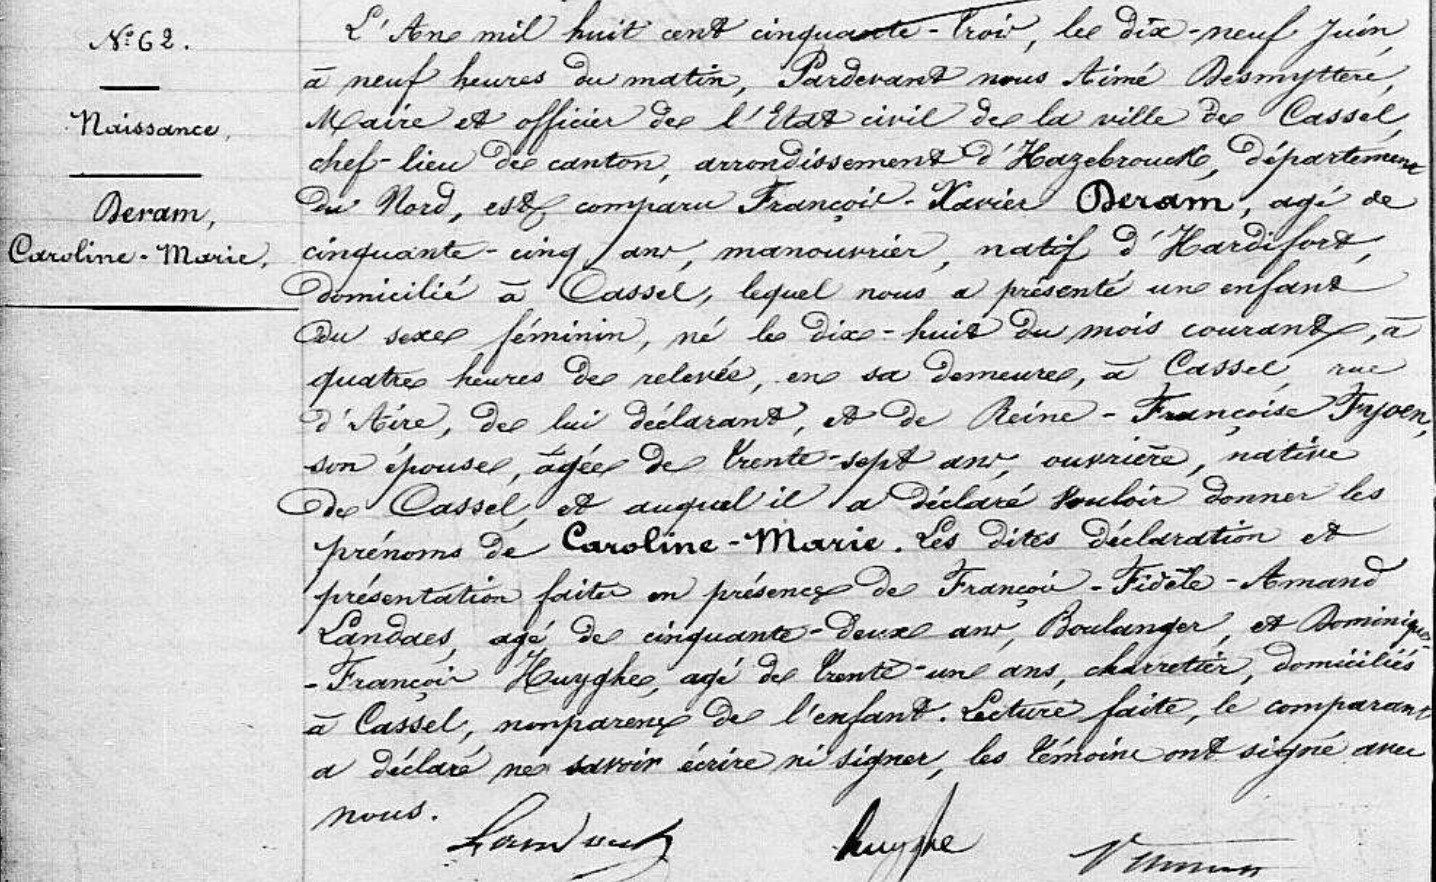 N° 62.
Naissance,
Deram,
Caroline-Marie.
L'An mil huit cent cinquante-trois, le dix-neuf Juin,
à neuf heures du matin, Pardevant nous Aimé Desmyttere,
Maire et officier de l'Etat civil de la ville de Cassel,
chef-lieu de canton, arrondissement d'Hazebrouck, département
du Nord, est comparu François-Xavier Deram, agé de
cinquante-cinq ans, manouvrier, natif d'Hardifort,
domicilié à Cassel, lequel nous a présenté un enfant
du sexe féminin, né le dix-huit du mois courant, à
quatre heures de relevée, en sa demeure, à Cassel, rue
d'Aire, de lui déclarant, et de Reine-Françoise Tryoen,
son épouse, âgée de trente-sept ans, ouvrière, native
de Cassel, et auquel il a déclaré vouloir donner les
prénoms de Caroline-Marie. Les dites déclaration et
présentation faites en présence de François-Fidèle-Amand
Landaes, agé de cinquante-deux ans, Boulanger, et Dominique
-François Huyghe, agé de trente-un ans, charretier, domiciliés
à Cassel, nonparens de l'enfant. Lecture faite, le comparant
a déclaré ne savoir écrire ni signer, les témoins ont signé avec
nous.
huyghe